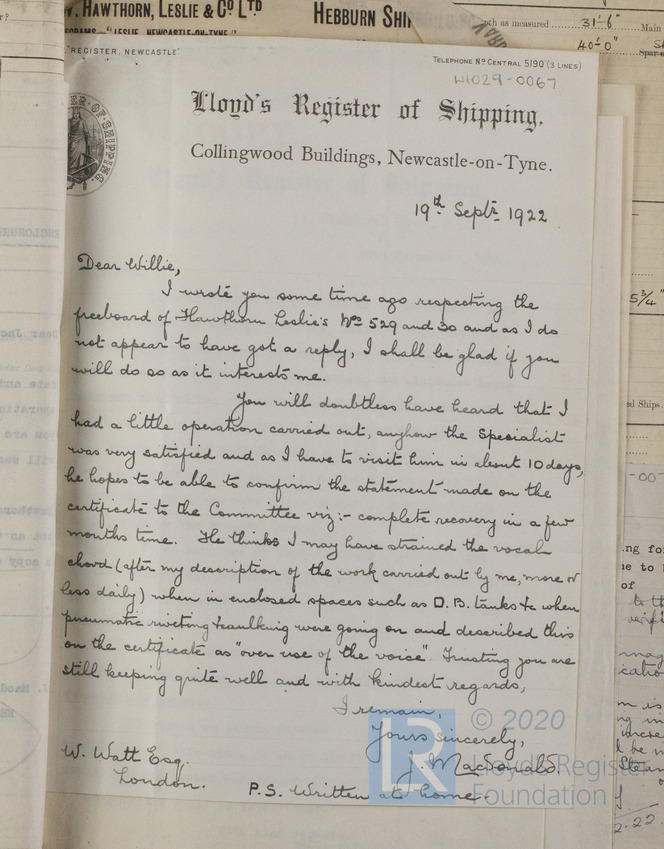 HAWTHORN, LESLIE & Co LTD
HEBBURN SHI
"LESLIE, NEWCASTLE-ON-TYNE."
as measured
31'-6"
Main
40'-0"
"REGISTER, NEWCASTLE"
TELEPHONE No CENTRAL 5190 (3 LINES)
W1029-0067
Lloyd's Register of Shipping.
Collingwood Buildings, Newcastle-on-Tyne.
19th Septr 1922
Dear Willie,
I wrote you some time ago respecting the
freeboard of Hawthorn Leslie's Nos 529 and 30 and as I do
not appear to have got a reply, I shall be glad if you
will do so as it interests me.
You will doubtless have heard that I
had a little operation carried out, anyhow the Specialist
was very satisfied and as I have to visit him in about 10 days,
he hopes to be able to confirm the statement made on the
certificate to the Committee viz:- complete recovery in a few
months time. He thinks I may have strained the vocal
chord (after my description of the work carried out by me, more or
less daily) when in enclosed spaces such as D.B. tanks & when
pneumatic riveting & caulking were going on and described this
on the certificate as "over use of the voice". Trusting you are
still keeping quite well and with kindest regards,
I remain,
Yours sincerely,
J. MacDonald.
W. Watt Esq.
London.
P.S. Written at home.
LR
© 2020
Lloyd's Register
Foundation
5¾"
ed Ships.
-00-
ng fo
of
2.22